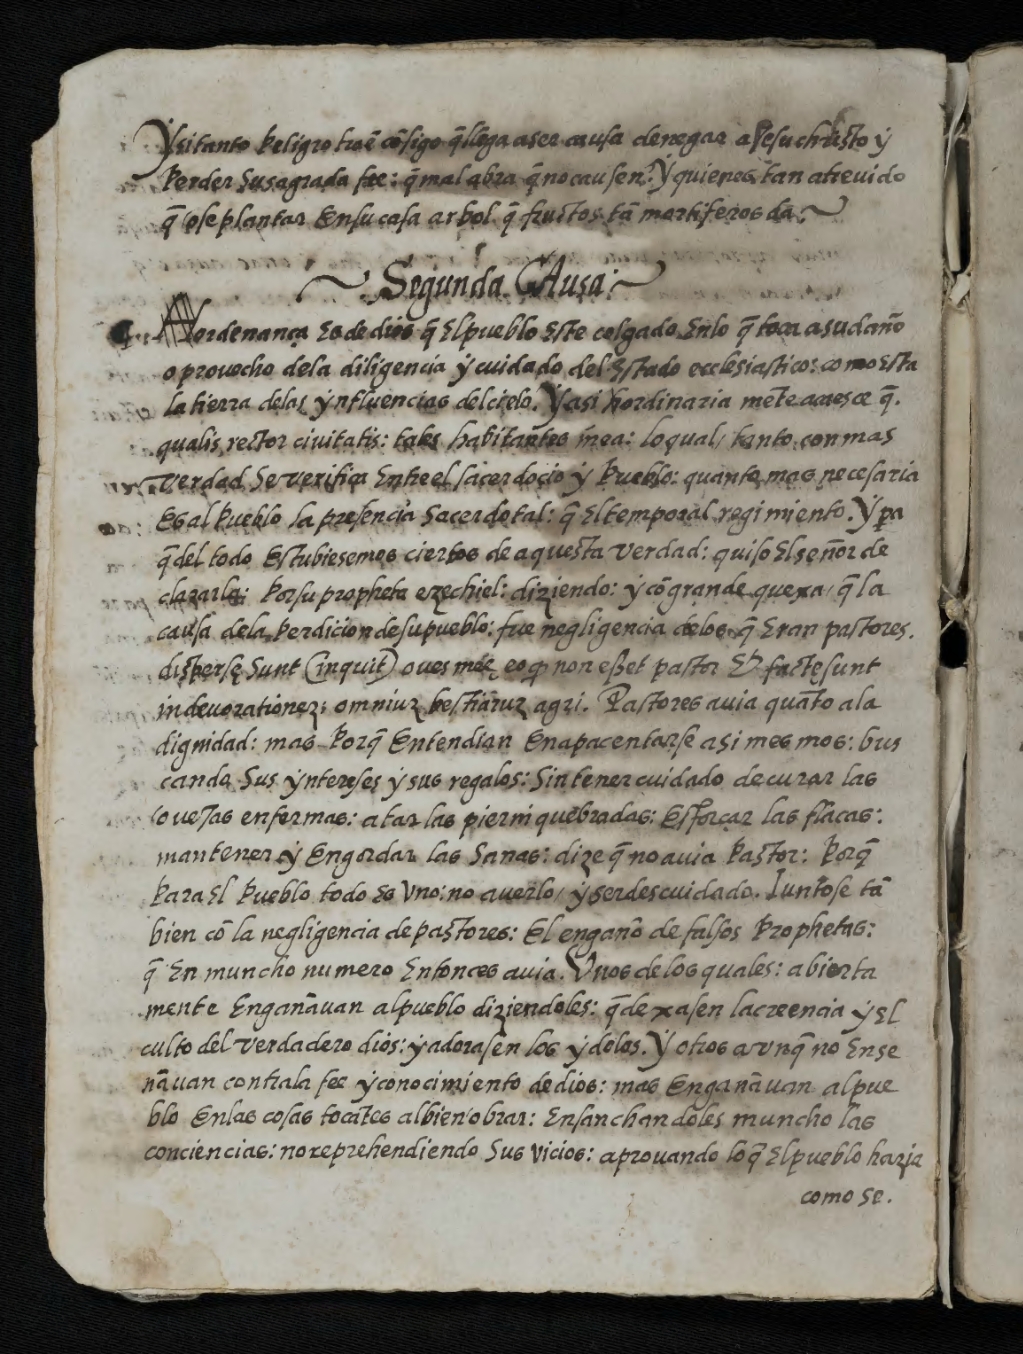 Ysi tanto peligro traē cōsigo q̄ llega a ser causa de negar a Jesuchristo y
perder su sagrada fee: q̄ mal abra q̄ no causen? Y quien es tan atrevido
q̄ ose plantar En su casa arbol q̄ fructos tā mortiferos da.
Segunda Causa:
ordenança Es de dios q̄ El pueblo Este colgado En lo q̄ toca a su daño
o provecho de la diligencia y cuidado del Estado ecclesiastico: como Esta
la tierra de las ynfluencias del cielo. Y asi hordinaria mēte acaesce q̄.
qualis rector civitatis: tales habitantes in ea: lo qual, tanto con mas
verdad Se verifica Entre el sacerdocio y Pueblo: quanto mas necesaria
Es al Pueblo la presencia Sacerdotal: q̄ El temporal regimiento. Y pa
q̄ del todo Estubiesemos ciertos de aquesta verdad: quiso El señor de
clararla: Por su propheta ezechiel: diziendo: y cō grande quexa, q̄ la
causa de la Perdicion de su pueblo: fue negligencia de los q̄ Eran pastores.
dispersę Sunt (inquit) oves męę eo q non esset pastor Et factę sunt
in devorationeȝ: omniuȝ bestiaruȝ agri. Pastores avia quāto a la
dignidad: mas Porq̄ Entendian En apacentarse a si mesmos: bus
cando Sus yntereses y sus regalos: Sin tener cuidado de curar las
ovejas enfermas: atar las pierni quebradas: Esforçar las flacas:
mantener y Engordar las Sanas: dize q̄ no avia Pastor: Porq̄
Para El Pueblo todo Es Uno: no averlo, y ser descuidado. Juntose tā
bien cō la negligencia de pastores: El engaño de falsos Prophetas:
q̄ En muncho numero Entonces avia. Unos de los quales: abierta
mente Engañavan al pueblo diziendoles: q̄ dexasen la creencia y El
culto del verdadero dios: y adorasen los ydolos. Y otros avnq̄ no Ense
ñavan contra la fee y conocimiento de dios: mas Engañavan al pue
blo En las cosas tocātes al bien obrar: Ensanchandoles muncho las
conciencias: no reprehendiendo Sus vicios: aprovando lo q̄ El pueblo hazia
como se.